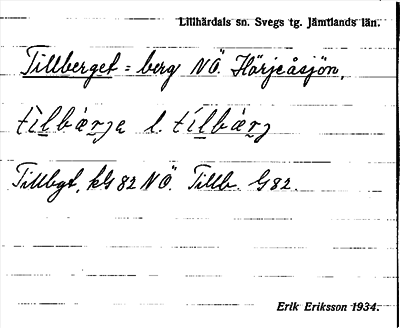 Lillhärdals sn. Svegs tg. Jämtlands län.
Tillberget = berg NÖ. Härjeåsjön.
tìlbær̨ɟa l. tílbær̨ɟ
Tillbgt, kG 82 NÖ. Tillb. G 82.
Erik Eriksson 1934.